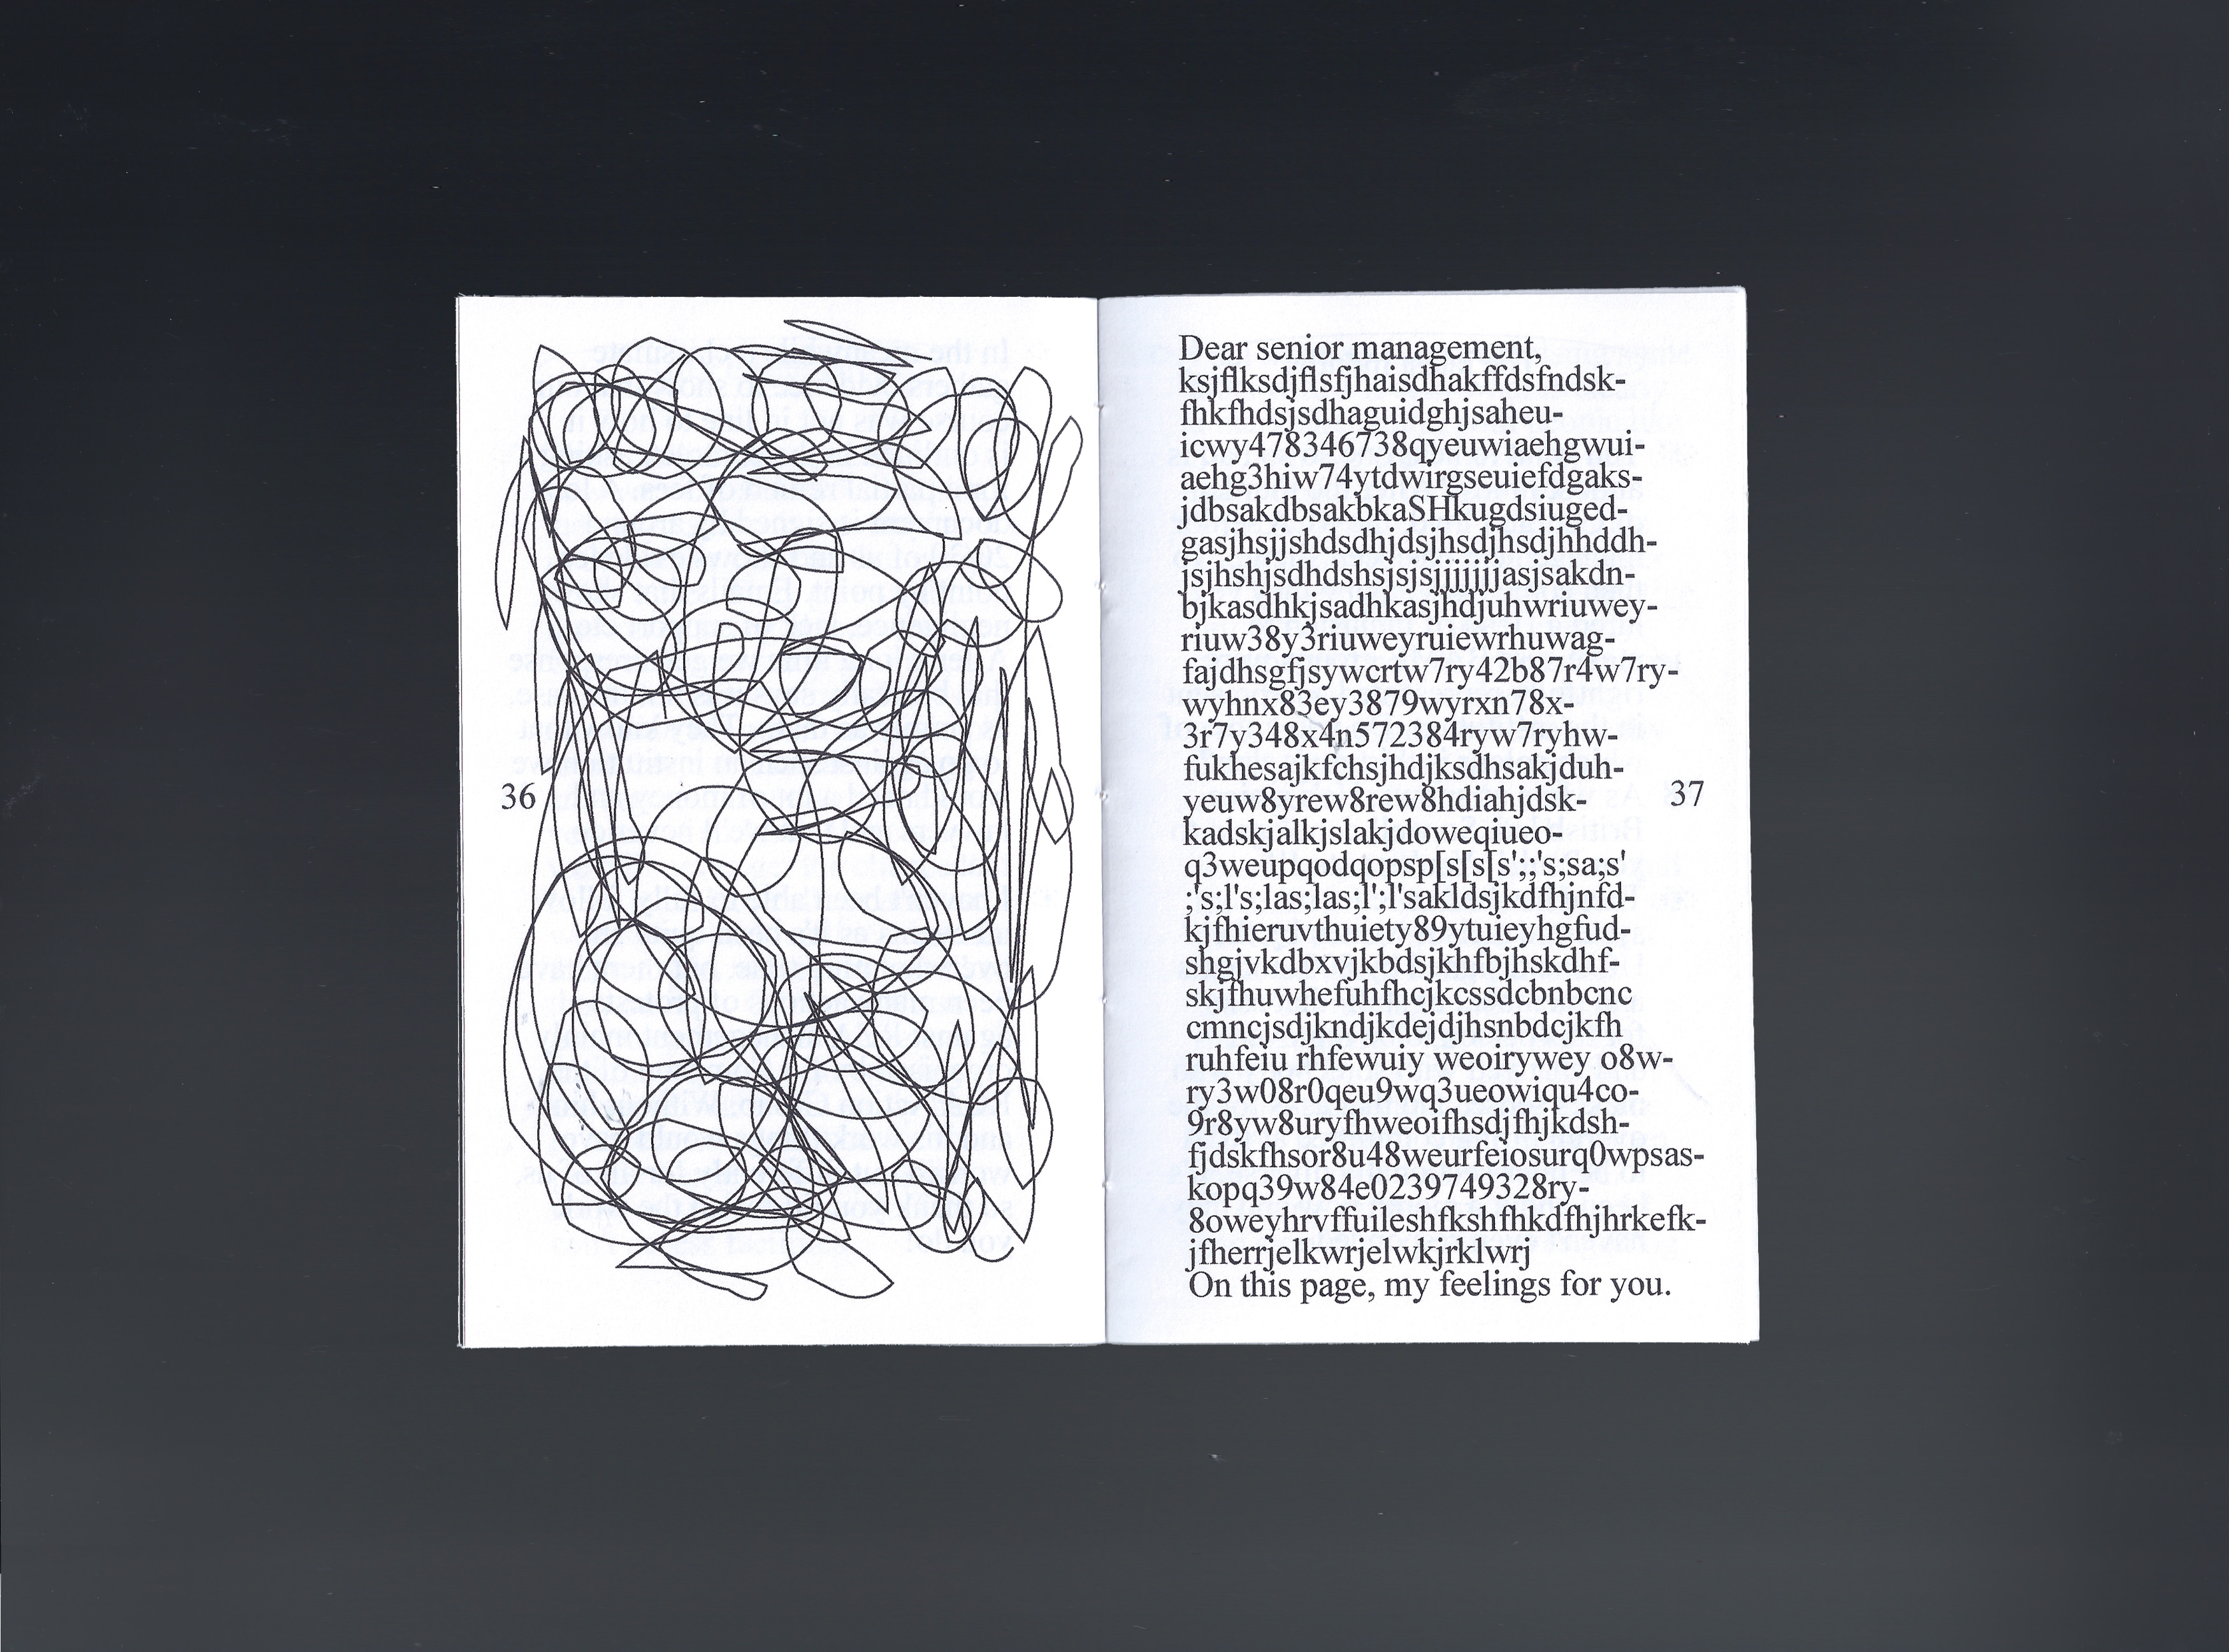 36
Dear senior management,
ksjflksdjflsfjhaisdhakffdsfndsk-
fhkfhdsjsdhaguidghjsaheu-
icwy478346738qyeuwiaehgwui-
aehg3hiw74ytdwirgseuiefdgaks-
jdbsakdbsakbkaSHkugdsiuged-
gasjhsjjshdsdhjdsjhsdjhsdjhhddh-
jsjhshjsdhdshsjsjsjjjjjjjasjsakdn-
bjkasdhkjsadhkasjhdjuhwriuwey-
riuw38y3riuweyruiewrhuwag-
fajdhsgfjsywcrtw7ry42b87r4w7ry-
wyhnx83ey3879wyrxn78x-
3r7y348x4n572384ryw7ryhw-
fukhesajkfchsjhdjksdhsakjduh-
yeuw8yrew8rew8hdiahjdsk-
kadskjalkjslakjdoweqiueo-
q3weupqodqopsp[s[s[s';;'s;sa;s'
;'s;l's;las;las;l';l'sakldsjkdfhjnfd-
kjfhieruvthuiety89ytuieyhgfud-
shgjvkdbxvjkbdsjkhfbjhskdhf-
skjfhuwhefuhfhcjkcssdcbnbcnc
cmncjsdjkndjkdejdjhsnbdcjkfh
ruhfeiu rhfewuiy weoirywey o8w-
ry3w08r0qeu9wq3ueowiqu4co-
9r8yw8uryfhweoifhsdjfhjkdsh-
fjdskfhsor8u48weurfeiosurq0wpsas-
kopq39w84e0239749328ry-
8oweyhrvffuileshfkshfhkdfhjhrkefk-
jfherrjelkwrjelwkjrklwrj
On this page, my feelings for you.
37